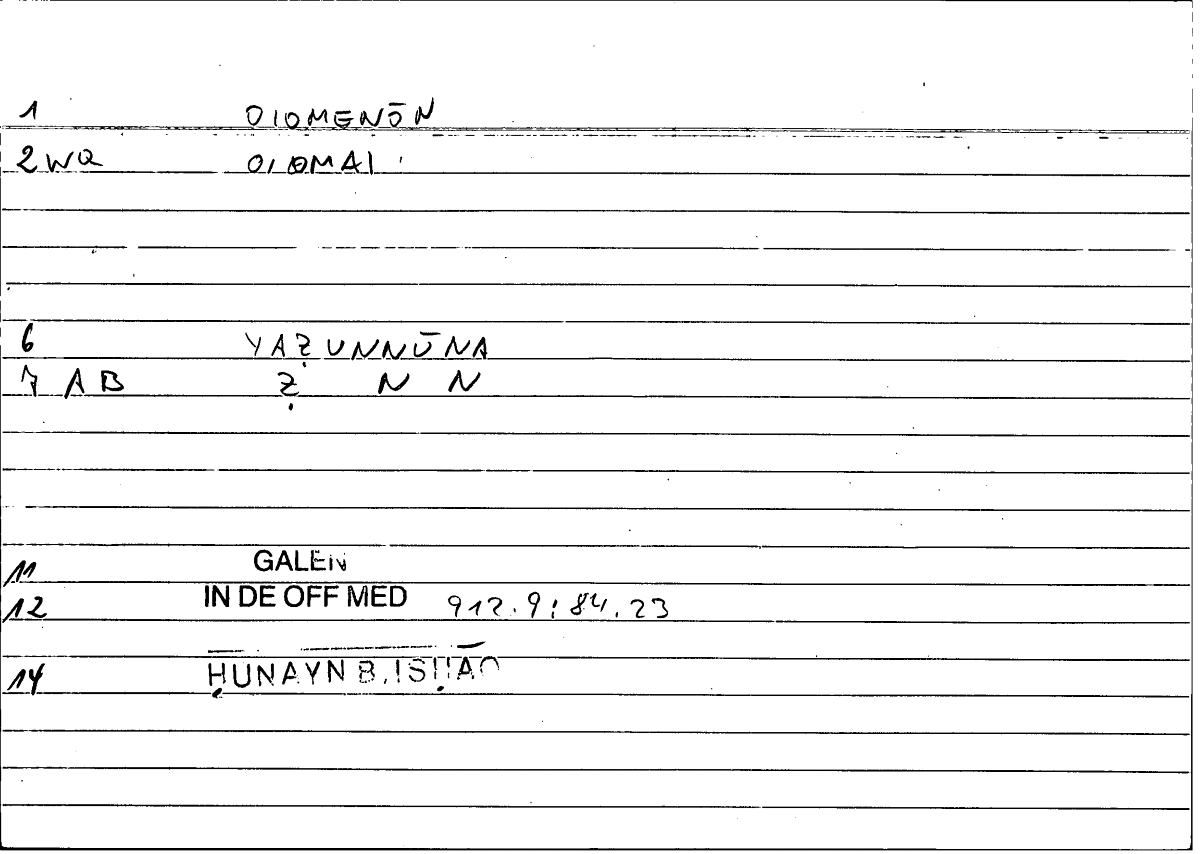 1 OIOMENŌN
2WQ OIOMAI
6 YAẒUNNŪNA
7 AB Ẓ N N
11 GALEN
12 IN DE OFF MED 912.9; 84.23
14 ḤUNAYN B. ISḤĀQ